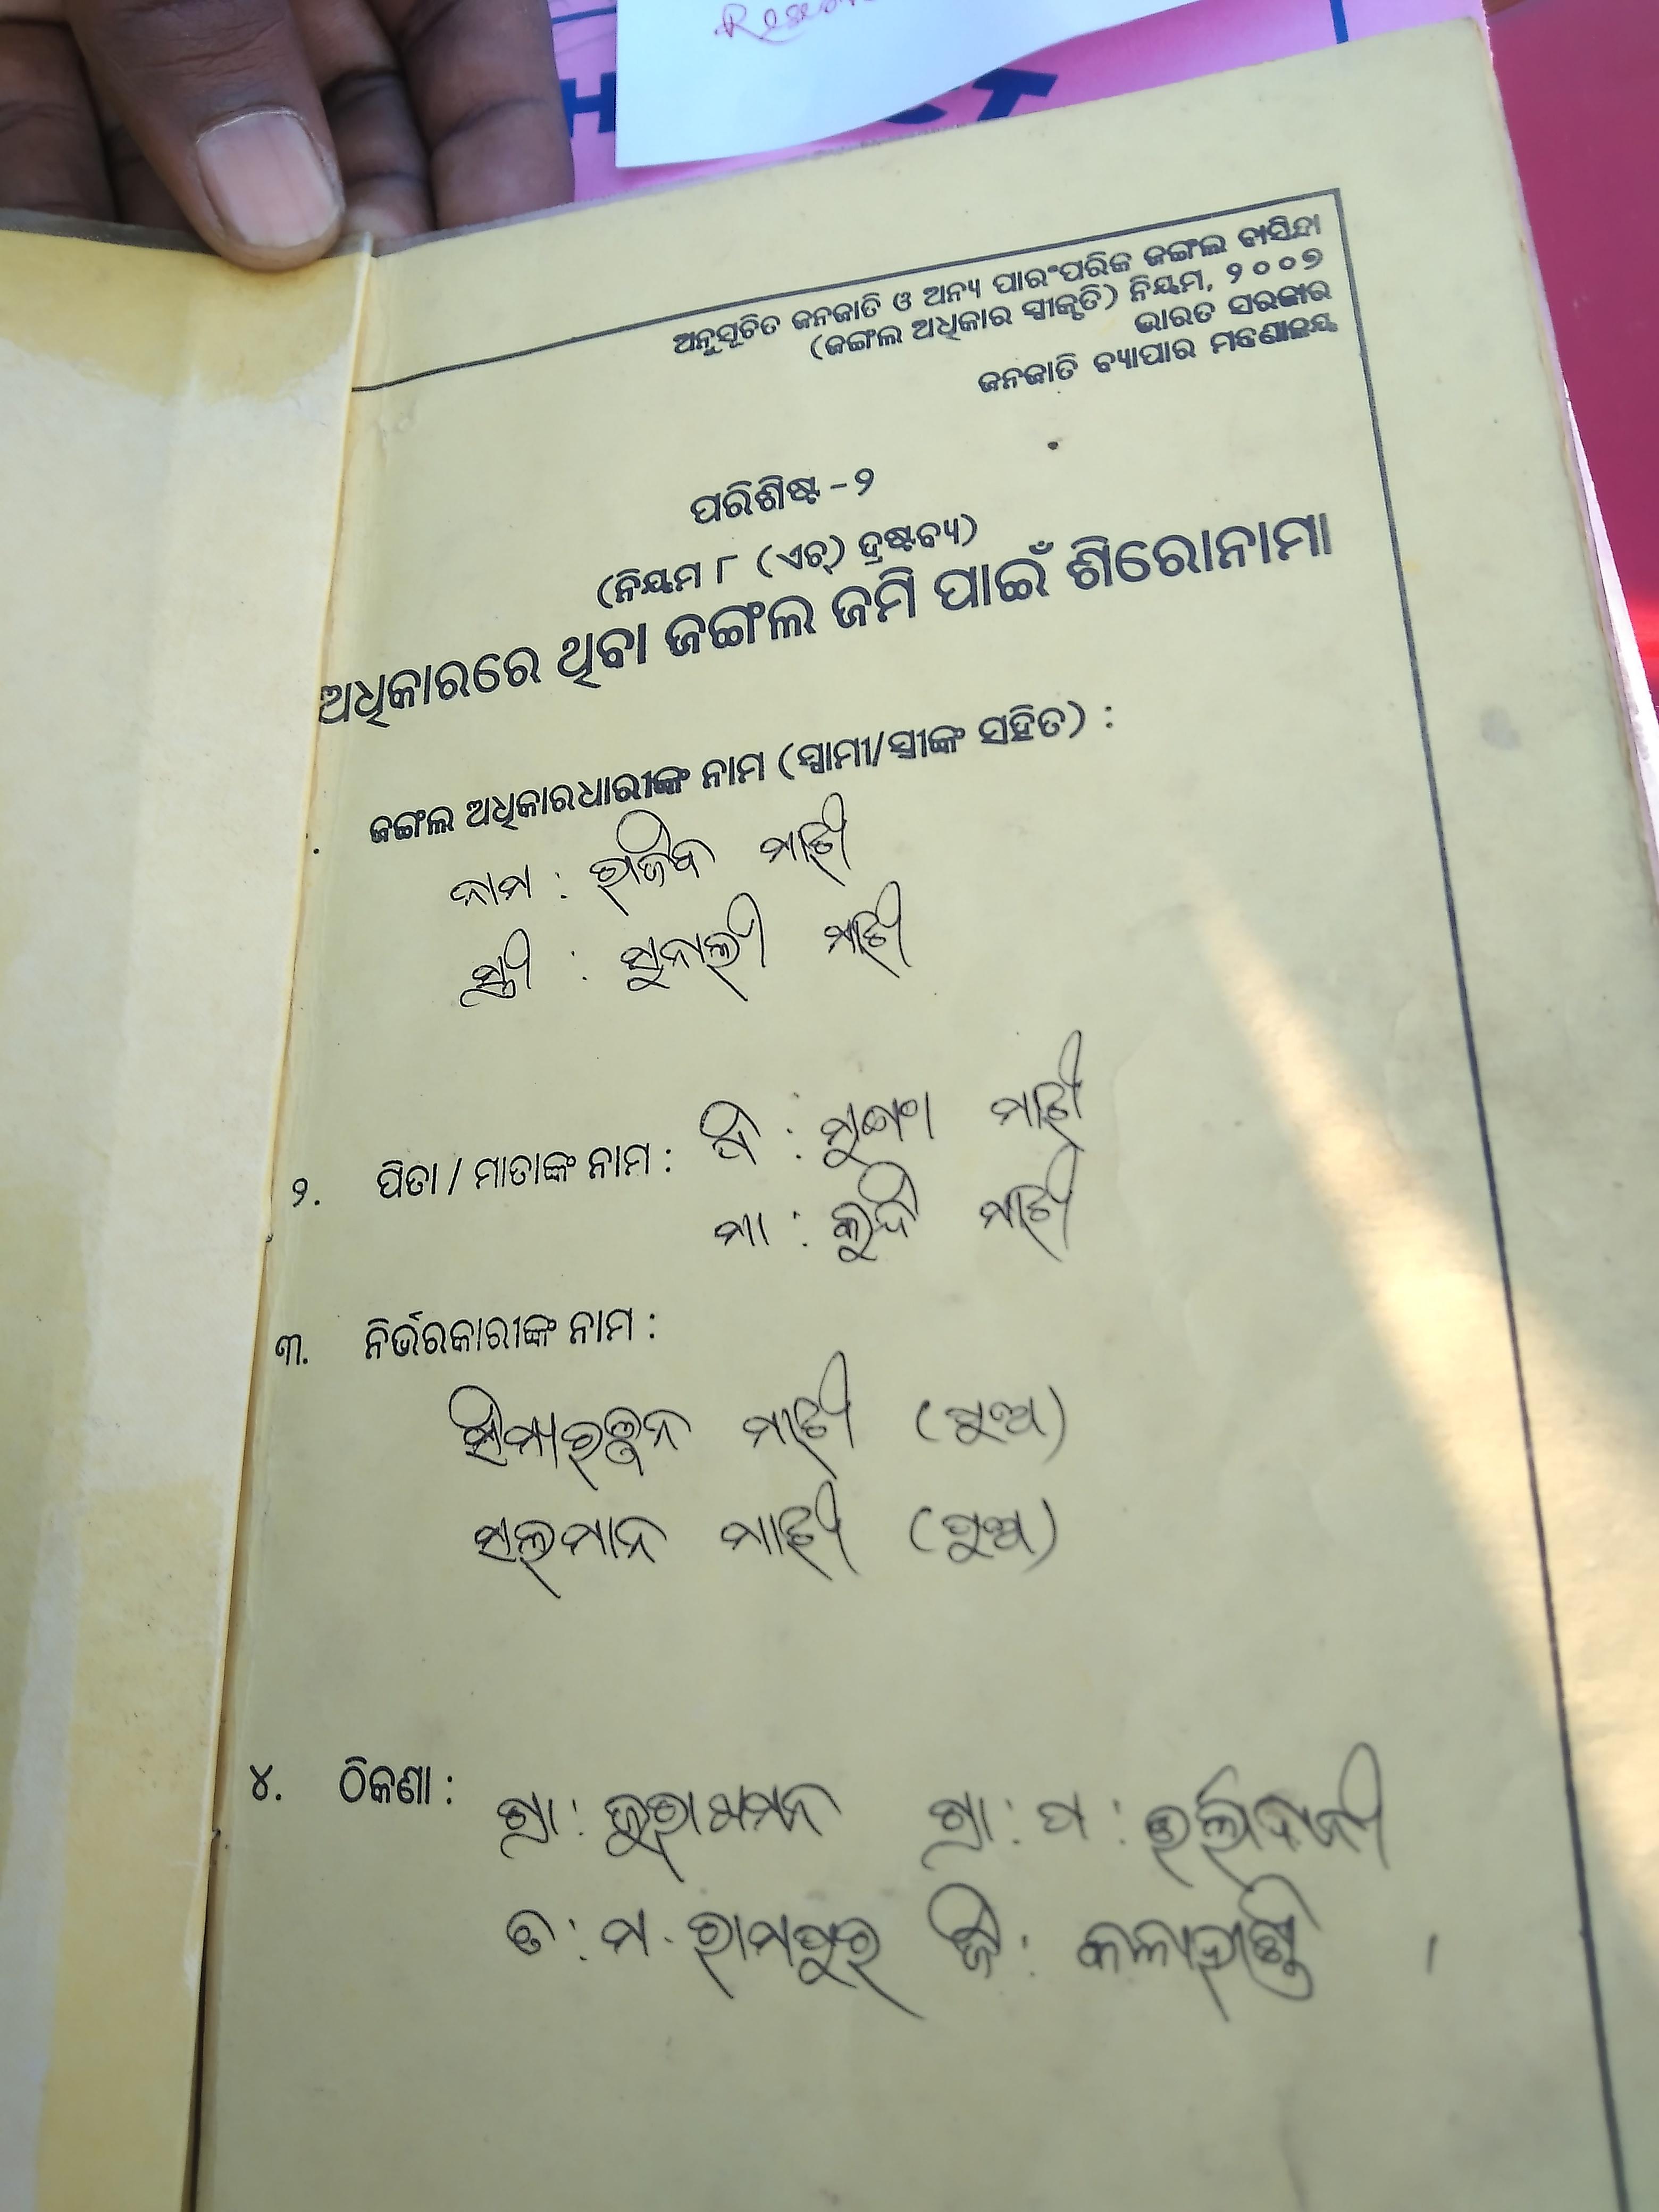 Rese
ଅନୁସୂଚିତ ଜନଜାତି ଓ ଅନ୍ୟ ପାରଂପରିକ ଜଙ୍ଗଲ ବାସିନ୍ଦା
(ଜଙ୍ଗଲ ଅଧିକାର ସ୍ୱୀକୃତି) ନିୟମ, ୨୦୦୭
ଭାରତ ସରକାର
ଜନଜାତି ବ୍ୟାପାର ମନ୍ତ୍ରଣାଳୟ
ପରିଶିଷ୍ଟ - ୨
(ନିୟମ ୮ (ଏଚ୍) ଦ୍ରଷ୍ଟବ୍ୟ)
ଅଧିକାରରେ ଥିବା ଜଙ୍ଗଲ ଜମି ପାଇଁ ଶିରୋନାମା
. ଜଙ୍ଗଲ ଅଧିକାରଧାରୀଙ୍କ ନାମ (ସ୍ୱାମୀ/ସ୍ତ୍ରୀଙ୍କ ସହିତ) :
ନାମ : ରାଜିବ ମାଝୀ
ସ୍ତ୍ରୀ : ସୁନାଲୀ ମାଝୀ
୨. ପିତା / ମାତାଙ୍କ ନାମ : ପି : ମାଝୀ
ମା : କୁନ୍ଦି ମାଝୀ
୩. ନିର୍ଭରକାରୀଙ୍କ ନାମ :
ମାଝୀ (ପୁଅ)
ସଲମାନ ମାଝୀ (ପୁଅ)
୪. ଠିକଣା : ଗ୍ରା : ଗ୍ରା : ପ :
ତ : ମ. ରାମପୁର ଜି : କଳାହାଣ୍ଡି ।